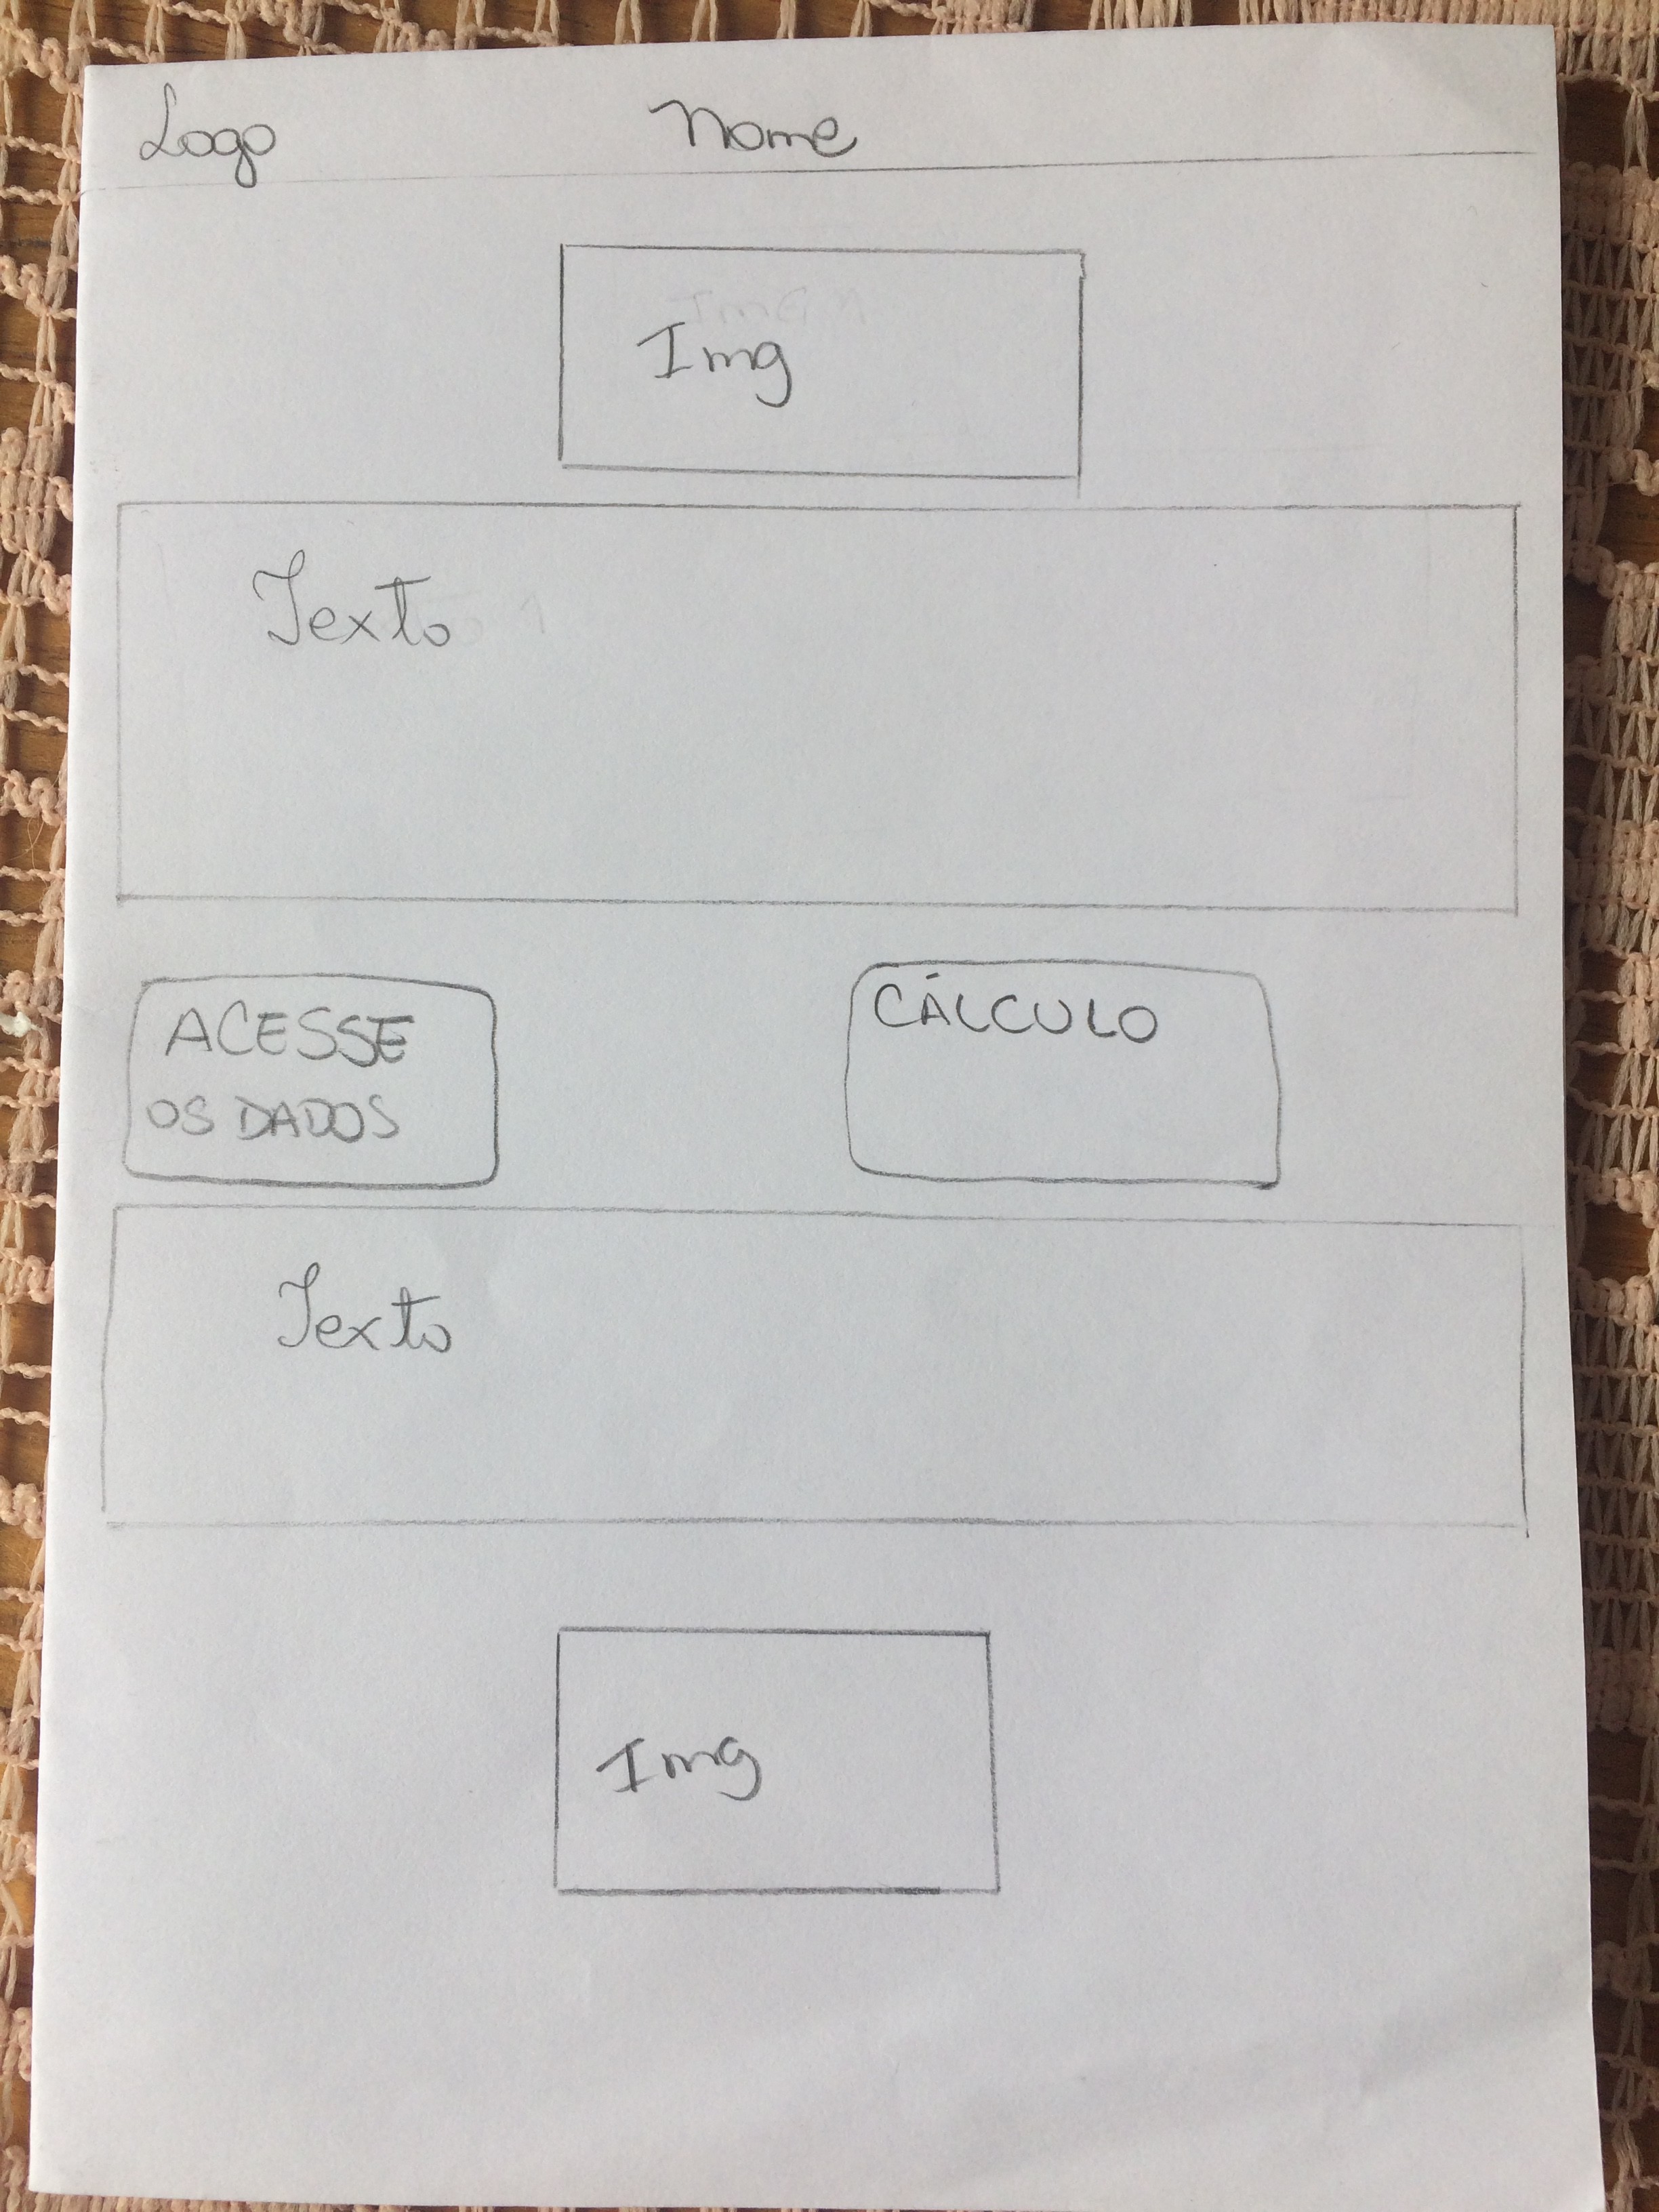 Logo
Nome
Img
Texto
ACESSE
OS DADOS
CÁLCULO
Texto
Img